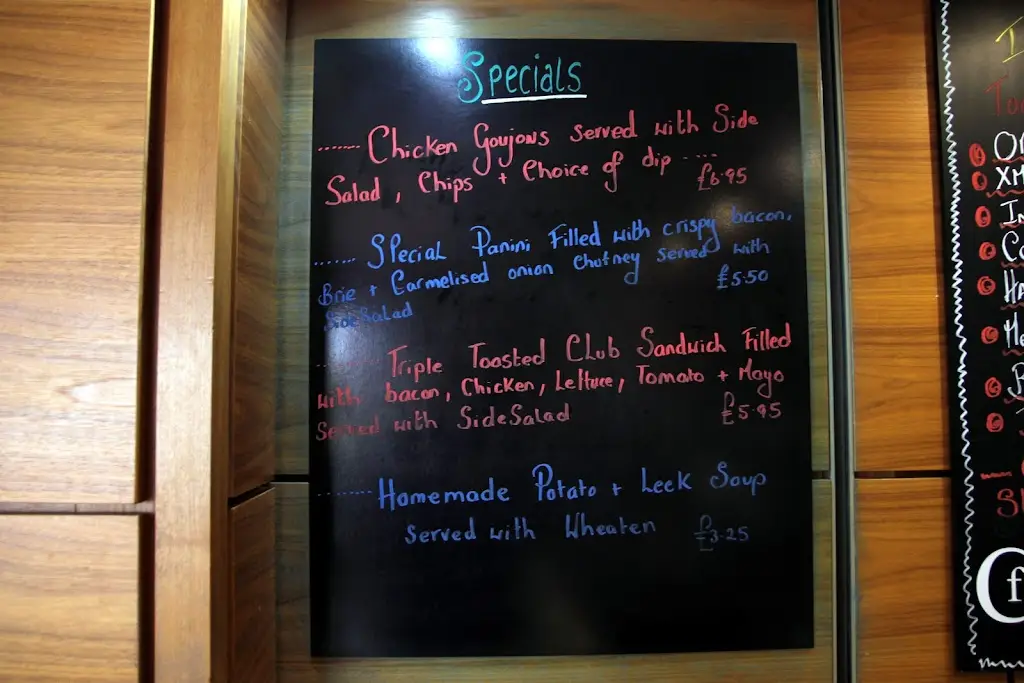 Specials
....... Chicken Goujons served with Side
Salad, Chips + Choice of dip ....
£6.95
....... Special Panini Filled with crispy bacon,
Brie + Carmelised onion chutney served with
Side Salad
£5.50
....... Triple Toasted Club Sandwich Filled
with bacon, Chicken, Lettuce, Tomato + Mayo
Served with Side Salad £5.95
........ Homemade Potato + Leek Soup
Served with Wheaten £3.25